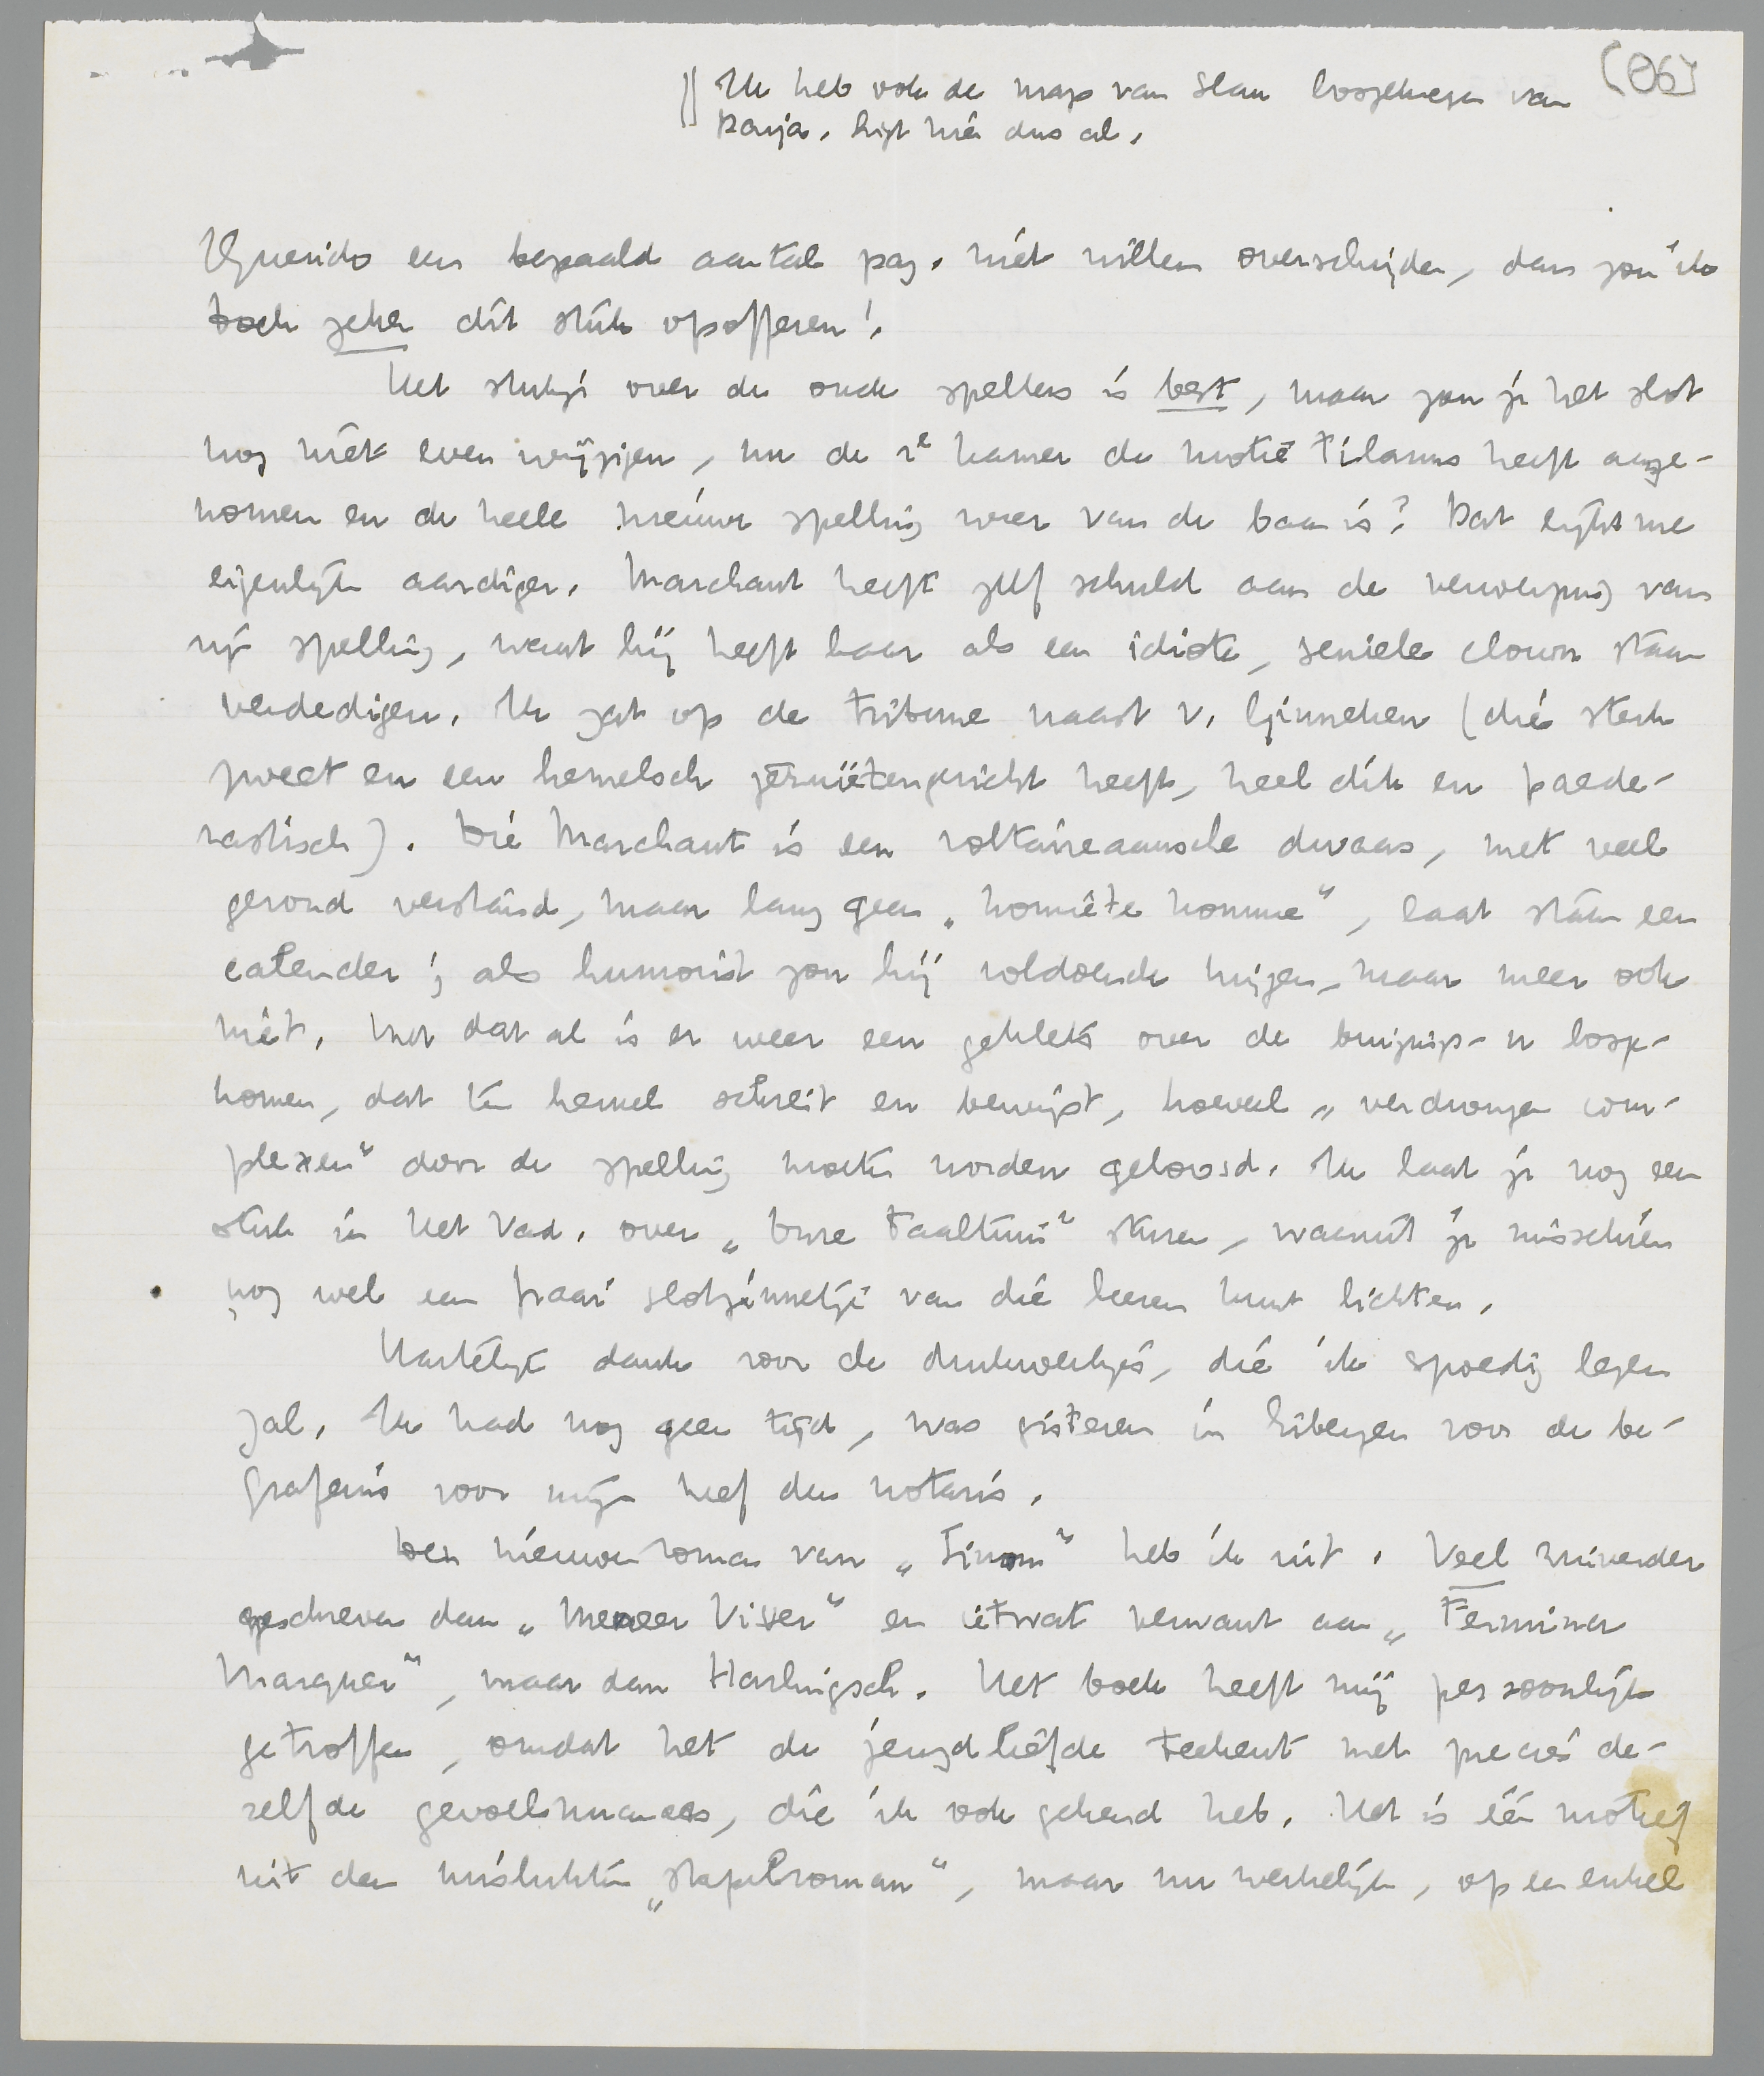 (06)
Ik heb ook de map van Slau losgekregen van
Kanja. Ligt hier dus al.
Querido een bepaald aantal pag. niet willen overschrijden, dan zou ik
toch zeker dit stuk opofferen!
Het stukje over de oude spellers is best, maar zou je het slot
nog niet even wijzigen, nu de 2e kamer de motie Tilanus heeft aange-
nomen en de heele nieuwe spelling weer van de baan is? Dat lijkt me
eigenlijk aardiger. Marchant heeft zelf schuld aan de verwerping van
zijn spelling, want hij heeft haar als een idiote, seniele clown staan
verdedigen. Ik zat op de tribune naast v. Ginneken (die sterk
zweet en een hemelsch jezuïetengezicht heeft, heel dik en paede-
rastisch). Die Marchant is een voltaireaansche dwaas, met veel
gezond verstand, maar lang geen „honnête homme", laat staan een
; als humorist zou hij voldoende krijgen, maar meer ook
niet. Met dat al is er weer een geklets over de buigings-n losge-
komen, dat ten hemel schreit en bewijst, hoeveel „verdrongen com-
plexen" door de spelling moeten worden geloosd. Ik laat je nog een
stuk in Het Vad. over „Onze Taaltuin" sturen, waaruit je misschien
nog wel een fraai slotzinnetje van die heeren kunt lichten.
Hartelijk dank voor de drukwerkjes, die ik spoedig lezen
zal. Ik had nog geen tijd, was gisteren in Eibergen voor de be-
grafenis voor mijn neef den notaris.
Den nieuwen roman van „Finom" heb ik uit. Veel zuiverder
geschreven dan „Meneer Visser" en ietwat verwant aan „Fermina
Marquez", maar dan Harlingsch. Het boek heeft mij persoonlijk
getroffen, omdat het de jeugdliefde teekent met precies de-
zelfde gevoelsnuances, die ik ook gekend heb. Het is één motief
uit den mislukten „stapelroman", maar nu werkelijk, op een enkel